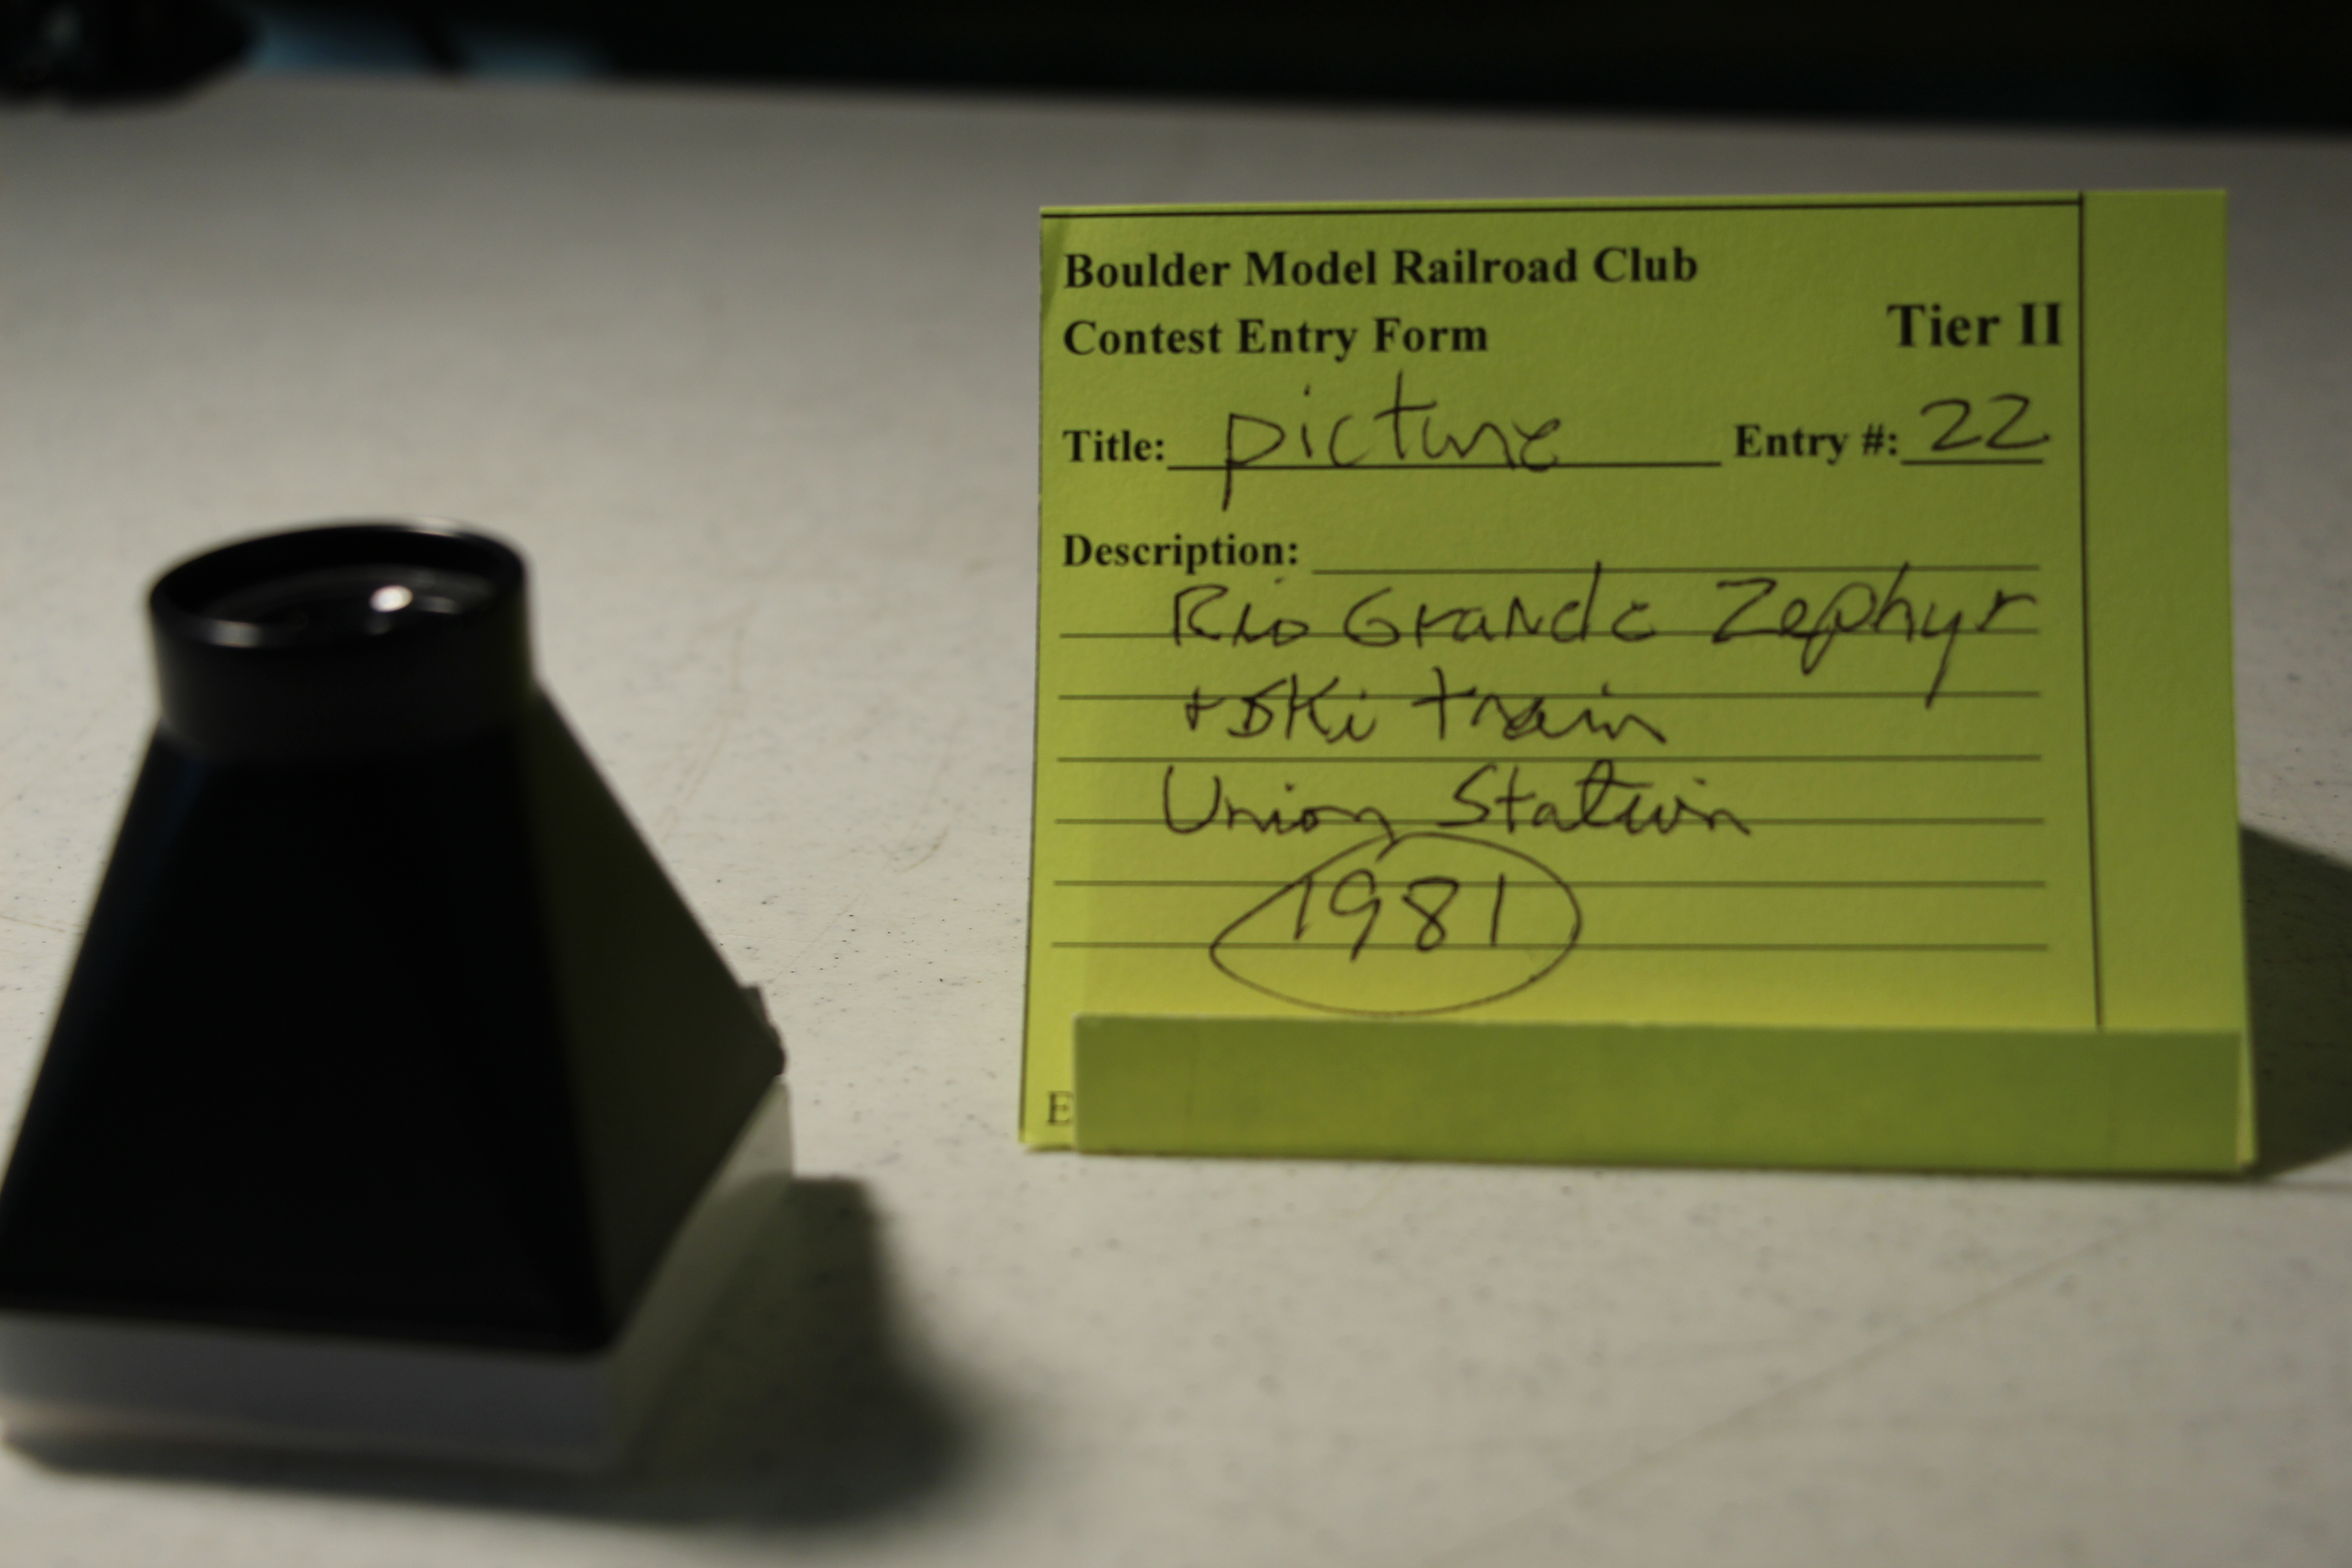 Boulder Model Railroad Club
Contest Entry Form Tier II
Title: picture Entry #: 22
Description:
Rio Grande Zephyr
+ Ski train
Union Station
1981
E